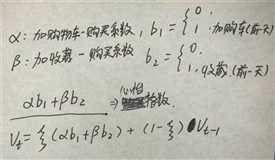 α: 加购物车-购买系数, b₁ = { 0. 1. 加购车(前一天)
β: 加收藏-购买系数 b₂ = { 0. 1. 收藏(前一天)
αb₁+βb₂ ⇒ 心怕指数.
Vₜ = ξ(αb₁+βb₂) + (1-ξ) Vₜ₋₁